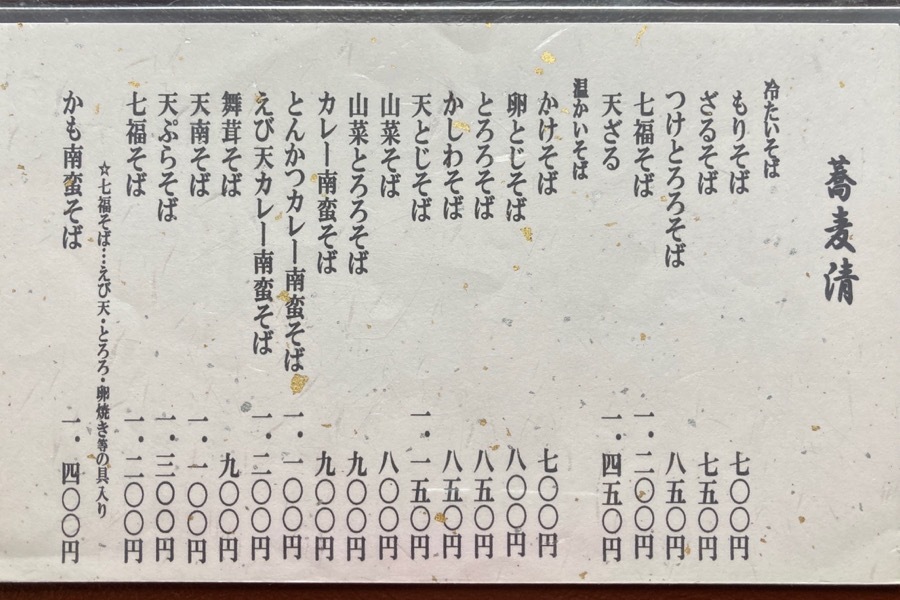 蕎麦清
冷たいそば
もりそば 七〇〇円
ざるそば 七五〇円
つけとろろそば 八五〇円
七福そば 一・二〇〇円
天ざる 一・四五〇円
温かいそば
かけそば 七〇〇円
卵とじそば 八〇〇円
とろろそば 八五〇円
かしわそば 八五〇円
天とじそば 一・一五〇円
山菜そば 八〇〇円
山菜とろろそば 九〇〇円
カレー南蛮そば 九〇〇円
とんかつカレー南蛮そば 一・一〇〇円
えび天カレー南蛮そば 一・二〇〇円
舞茸そば 九〇〇円
天南そば 一・一〇〇円
天ぷらそば 一・三〇〇円
七福そば 一・二〇〇円
☆七福そば…えび天・とろろ・卵焼き等の具入り
かも南蛮そば 一・四〇〇円